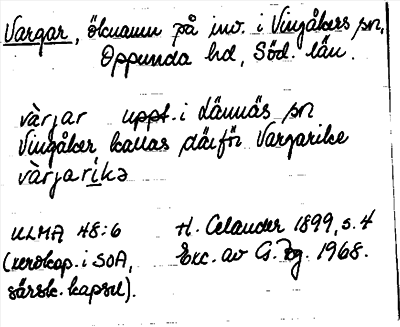 Vargar, öknamn på inv. i Vingåkers sn,
Oppunda hd, Söd. län.
vàrjar uppt. i Lännäs sn
Vingåker kallas därför Vargarike
vàrjarikə
ULMA 48:6 H. Celander 1899, s. 4
(xerokop. i SOA, Exc. av G. Bg. 1968.
särsk. kapsel).